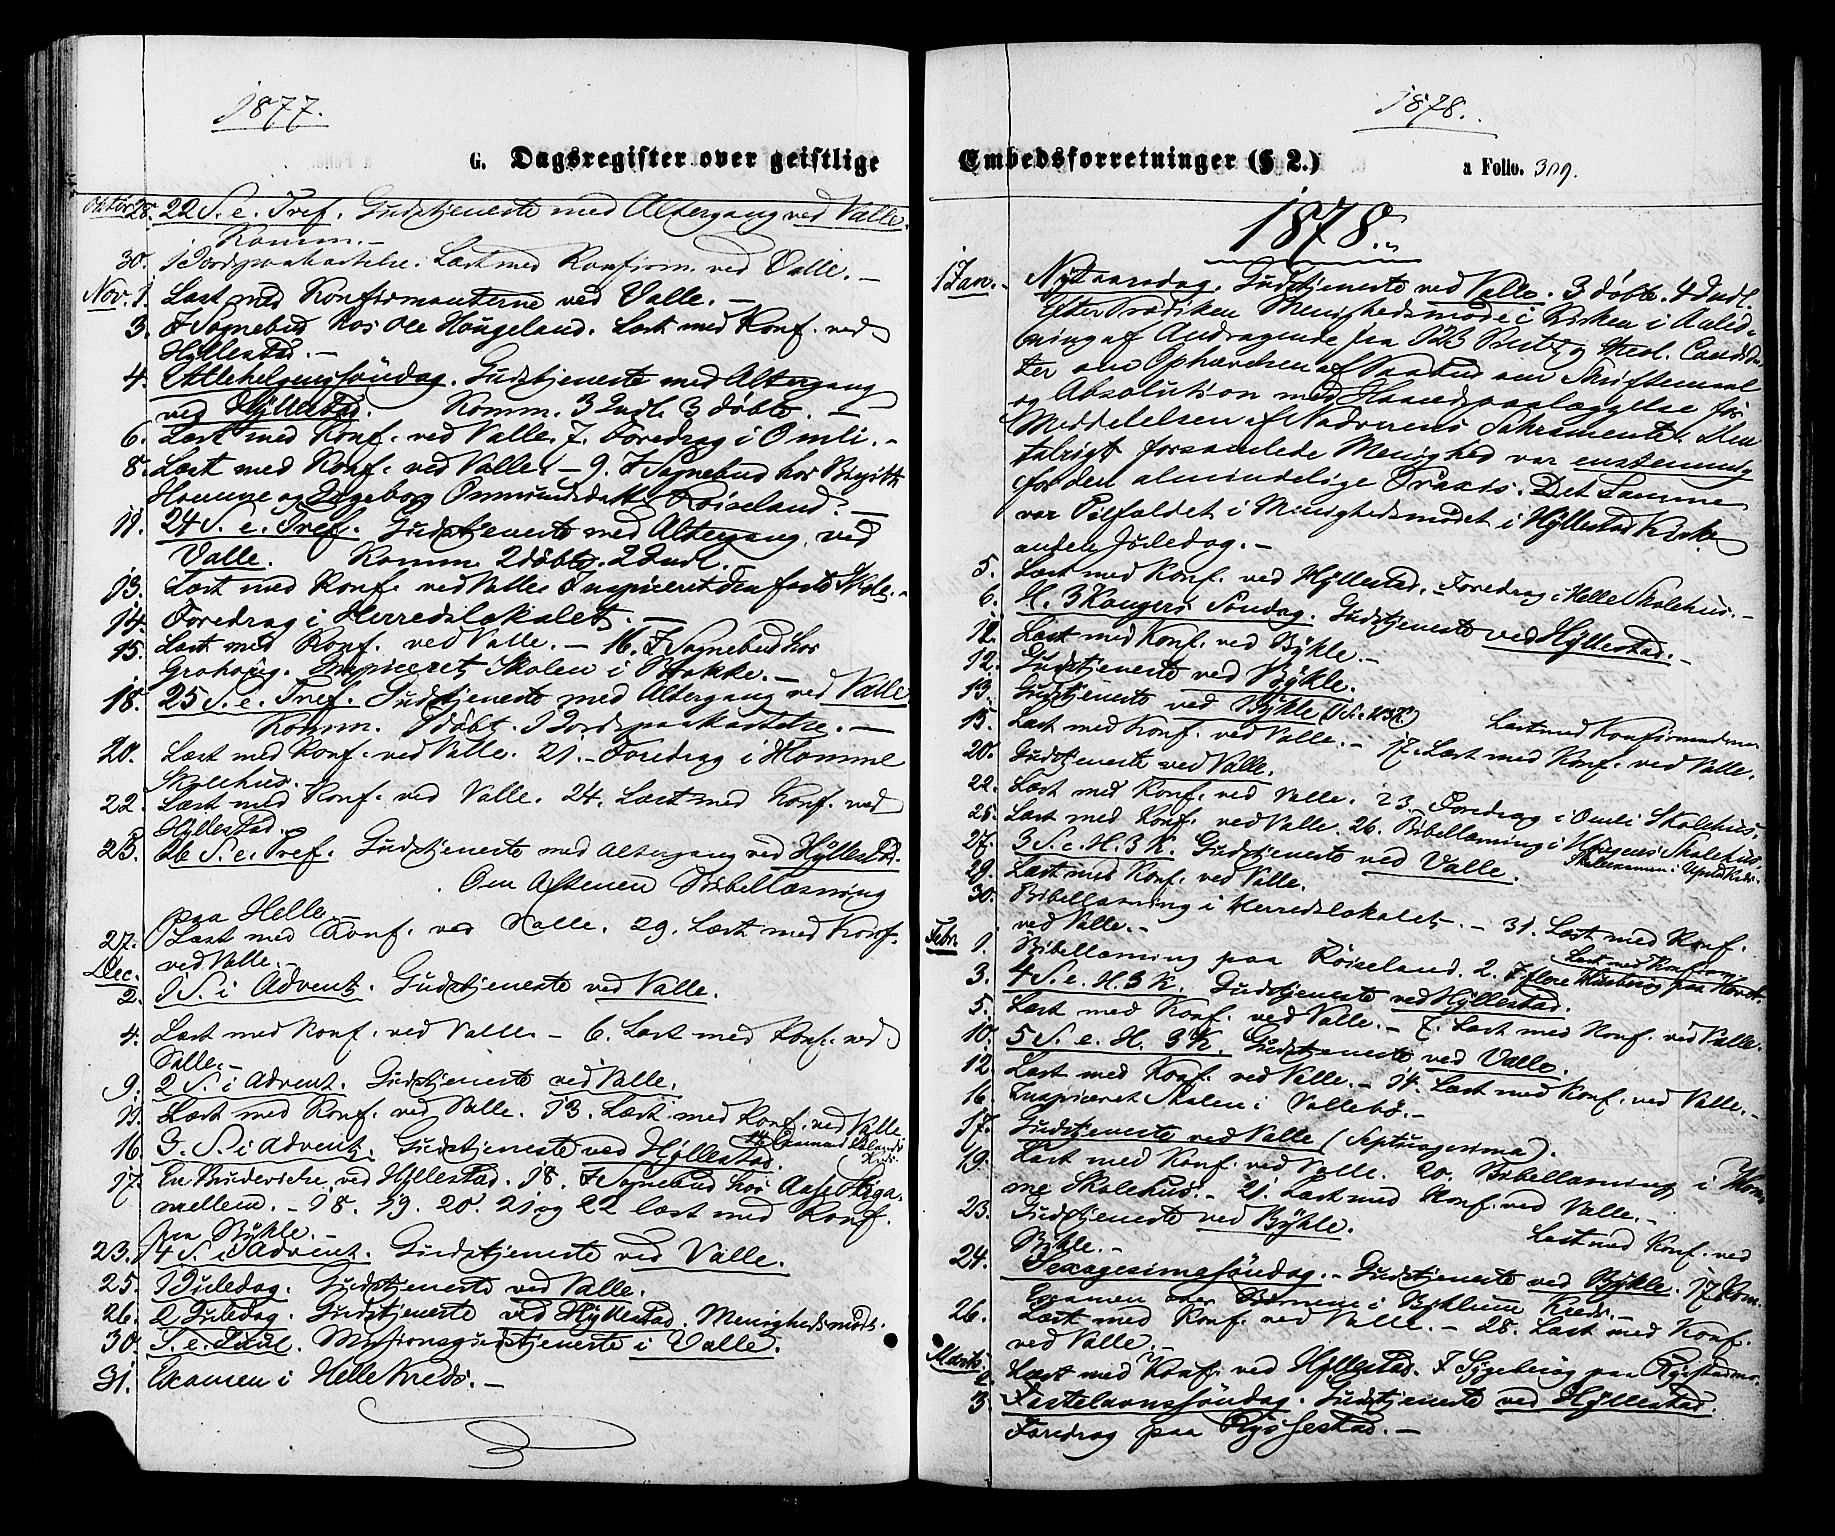 1877.
G. Dagsregister over geistlige
Oktbr 28. 22 S. e. Tref. Gudstjeneste med Altergang ved Valle.
Komm. —
30. 1 Jordspaakastelse. Læst med Konfirm. ved Valle. —
Nov. 1. Læst med Konfirmanterne ved Valle. —
3. I Sognebud hos Ole Haugeland. Læst med Konf. ved
Hyllestad. —
4. Allehelgensøndag. Gudstjeneste med Altergang
ved Hyllestad. Komm. 3 Indl. 3 døbte. —
6. Læst med Konf. ved Valle. 7. Foredrag i Omli. —
8. Læst med Konf. ved Valle. — 9. I Sognebud hos Birgitte
Homme og Ingeborg Omundsdatter Røiseland. —
11. 24 S. e. Tref. Gudstjeneste med Altergang ved
Valle. Komm. 2 døbte. 2 Indl.
13. Læst med Konf. ved Valle. Inspiceret den faste Skole. —
14. Foredrag i Herredslokalet. —
15. Læst med Konf. ved Valle. — 16. I Sognebud hos
Inspiceret Skolen i Brokke. —
18. 25 S. e. Tref. Gudstjeneste med Altergang ved Valle
Komm. 1 døbt. 1 Jordspaakastelse. —
20. Læst med Konf. ved Valle. 21. — Foredrag i Homme
Skolehus. —
22. Læst med Konf. ved Valle. 24. Læst med Konf. ved
Hyllestad.
25. 26 S. e. Tref. Gudstjeneste med Altergang ved Hyllestad.
Om Aftenen Bibellæsning
paa Helle. —
27. Læst med Konf. ved Valle. 29. Læst med Konf.
ved Valle. —
Dec. 2. 1 S. i Advent. Gudstjeneste ved Valle.
4. Læst med Konf. ved Valle. — 6. Læst med Konf. ved
Valle. —
9. 2 S. i Advent. Gudstjeneste ved Valle.
11. Læst med Konf. ved Valle. 13. Læst med Konf. ved Valle
16. 3. S. i Advent. Gudstjeneste ved Hyllestad.
17. En Brudevielse ved Hyllestad. 18. I Sognebud hos Aase
mellem. — 18. 19. 20. 21 og 22 læst med Konf.
fra Bykle. —
23. 4 S. i Advent. Gudstjeneste ved Valle.
25. 1 Juledag. Gudstjeneste ved Valle.
26. 2 Juledag. Gudstjeneste ved Hyllestad. Menighedsmøde.
30. S. e. Juul. Missionsgudstjeneste i Valle.
31. Examen i Helle Kreds. —
1878.
Embedsforretninger (§ 2.)
a Folio. 309.
1878.
1 Jan. — Nytaarsdag. Gudstjeneste ved Valle. 3 døbte. 4 Indl.
Efter Prædiken Menighedsmøde i Kirken i Anled-
ning af Andragende fra 123 Præster og theol. Candida-
ter om Ophævelsen af Paabud om Skriftemaal
og Absolution med Haandspaalæggelse før
Meddelelsen af Nadverens Sakramente. Den
talrigt forsamlede Menighed var enstemmig
for den almindelige Praxis. Det Samme
var Tilfældet i Menighedsmødet i Hyllestad Kirke
anden Juledag. —
5. Læst med Konf. ved Hyllestad. Foredrag i Helle Skolehus. —
6. H. 3 Kongers Søndag. Gudstjeneste ved Hyllestad. —
12. Læst med Konf. ved Bykle. —
12. Gudstjeneste ved Bykle.
13. Gudstjeneste ved Bykle (1 S. e. H 3 K.) Læst med Konfirmanderne
15. Læst med Konf. ved Valle. — 17. Læst med Konf. ved Valle.
20. Gudstjeneste ved Valle.
22. Læst med Konf. ved Valle. 23. Foredrag i Omli Skolehus.
25. Læst med Konf. ved Valle. 26. Bibellæsning i Skolehus
27. 3 S. e. H. 3 K. Gudstjeneste ved Valle. Skoleexamen i
29. Læst med Konf. ved Valle.
30. Bibellæsning i Herredslokalet. — 31. Læst med Konf.
ved Valle. —
Febr. 1. Bibellæsning paa Røiseland. 2. Læst med Konfirm. I flere Husbesøg paa
3. 4 S. e. H. 3 K. Gudstjeneste ved Hyllestad.
5. Læst med Konf. ved Valle. — 7. Læst med Konf. ved Valle.
10. 5 S. e. H. 3 K. Gudstjeneste ved Valle.
12. Læst med Konf. ved Valle. — 14. Læst med Konf. ved Valle. —
16. Inspiceret Skolen i Vallebø. —
17. Gudstjeneste ved Valle (Septuagesima).
19. Læst med Konf. ved Valle. 20. Bibellæsning i Hom-
me Skolehus. — 21. Læst med Konf. ved Valle. —
23. Gudstjeneste ved Bykle. Læst med Konf. ved
Bykle. —
24. Sexagesimasøndag. — Gudstjeneste ved Bykle. 17 Kom-
Examen over Børnene i Byklum Kreds. —
26. Læst med Konf. ved Valle. — 28. Læst med Konf.
ved Valle. —
Marts 2. Læst med Konf. ved Hyllestad. I Sygebesøg paa Rysstadmo.
3. Fastelavnssøndag. Gudstjeneste ved Hyllestad.
Foredrag paa Rysestad. —